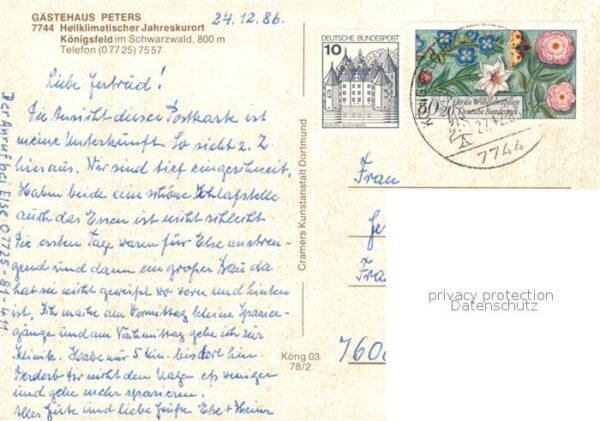 GÄSTEHAUS PETERS
7744 Heilklimatischer Jahreskurort
Königsfeld im Schwarzwald, 800 m
Telefon (0 77 25) 75 57
24.12.86.
Liebe Gertrud!
Die Ansicht dieser Postkarte ist
meine Unterkunft. So sieht z. Z.
hier aus. Wir sind tief eingeschneit.
Haben beide eine schöne Schlafstelle
auch das Essen ist nicht schlecht.
Die ersten Tage waren für Else anstren-
gend und dann ein großer Bau da
hat sie nicht gewußt wo vorn und hinten
ist. Ich mache am Vormittag kleine Spazier-
gänge und am Nachmittag gehe ich zur
Klinik. Habe nur 5 Min. bis dort hin.
Verderbt Dir nicht den Magen eß weniger
und gehe mehr spazieren.
Alles Gute und liebe Grüße Else + Heinz
Der Anruf bei Else 07725-81-411
DEUTSCHE BUNDESPOST
10
SCHLOSS GLÜCKSBURG
80+40
Für die Wohlfahrtspflege
Deutsche Bundespost
27.12.86
7744
Cramers Kunstanstalt Dortmund
Köng 03
78/2
Frau
Ge
Fra
760
privacy protection
Datenschutz